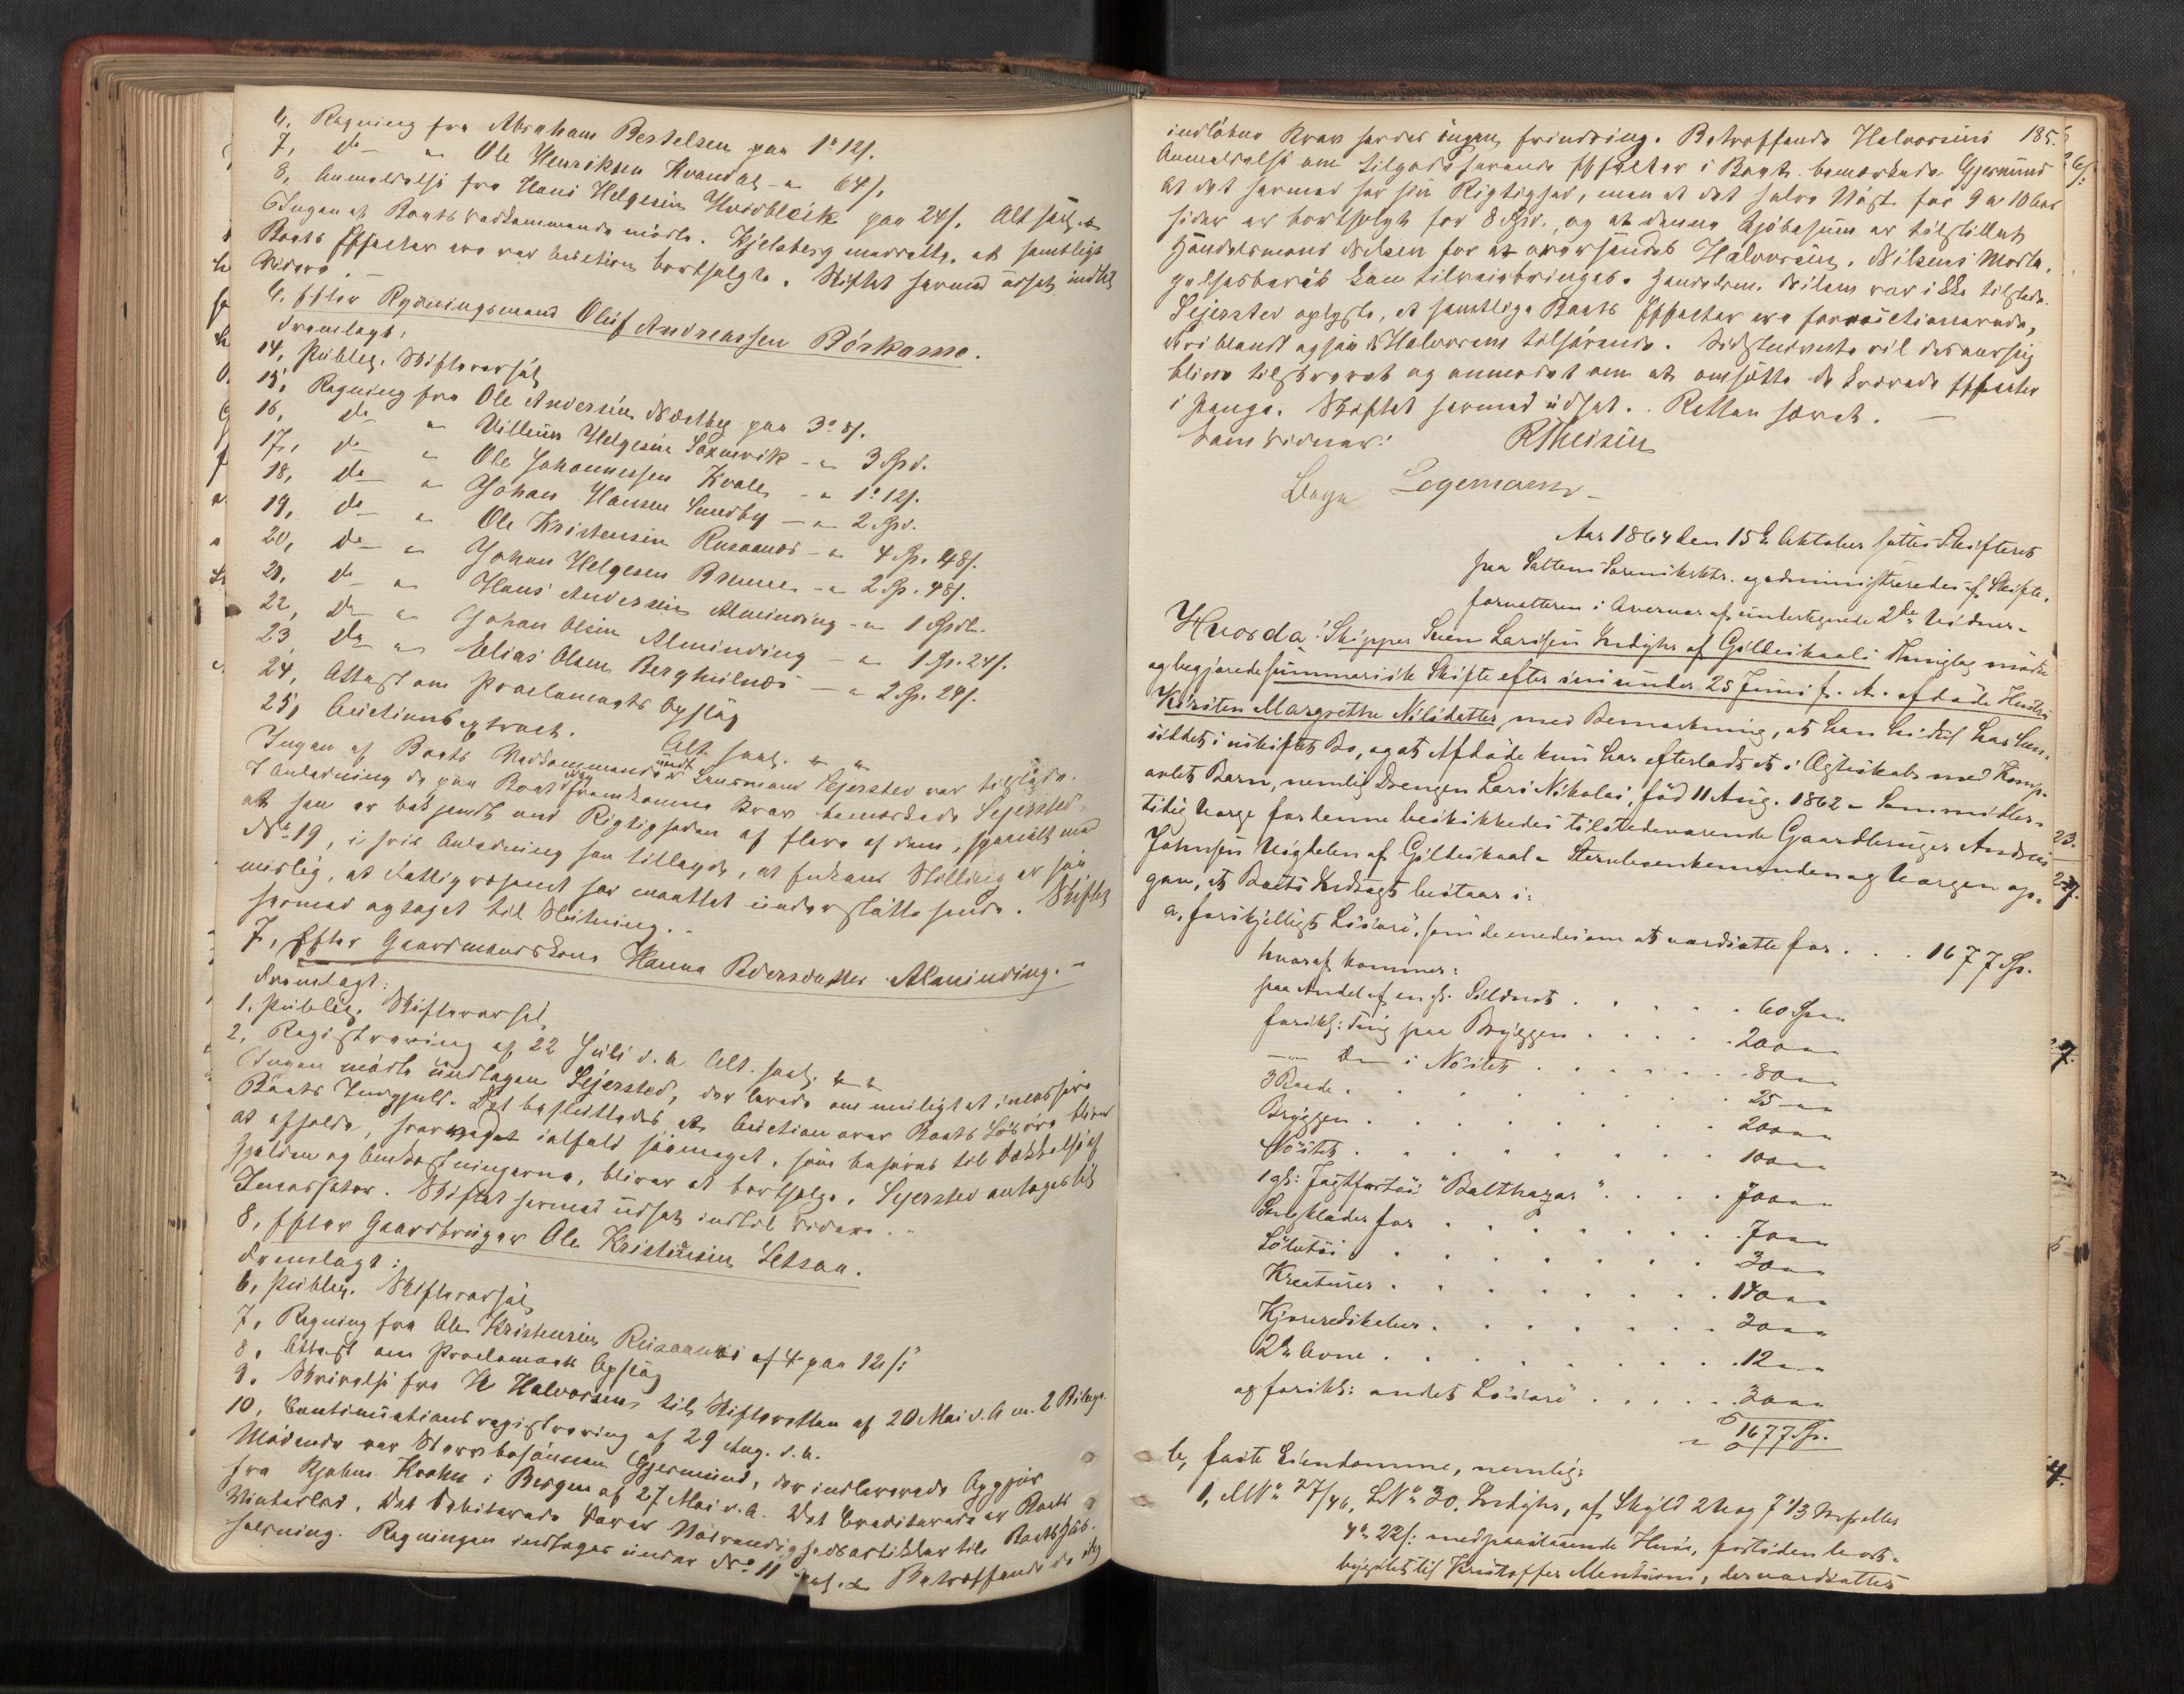 6, Regning fra Abraham Bertelsen paa 1" 12 s.
7, do " Ole Henriksen Kvandal - " 64 s.
8, Anmeldelse fra Hans Helgesen Hvidbleik paa 24 s. Alt saal.
Ingen af Boets Vedkommende mødte. Kjelsberg meddelte, at samtlige
Boets Effecter ere ved Auction bortsolgte. Skiftet hermed udsat indtil
Videre. -
6. Efter Rydningsmand Oluf Andreassen Bórkamo.
Fremlagt:
14, Publiceret Skiftevarsel
15, Regning fra Ole Andersen paa 3" 8 s.
16, do " Villum Helgesen Saxenvik - " 3 Spd.
17, do " Ole Johannessen Kvale - " 1" 12 s.
18, do " Johan Hansen Sundby - " 2 Spd.
19, do " Ole Kristensen Rusaanes - " 4 Sp. 48 s.
20, do " Johan Helgesen Brune - " 2 Sp. 48 s.
21, do " Hans Andersen Alminding - " 1 Spd.
22, do " Johan Olsen Alminding - " 1 Sp. 24 s.
23, do " Elias Olsen Berghulnes - " 2 Sp. 24 s.
24, Attest om Proclamaets Opslag
25, Auctionsextract.
Alt saal. " "
Ingen af Boets Vedkommende undt Lensmand Sejersted var tilstede.
I Anledning de paa Boet fremkomne Krav bemærkede Sejersted,
at han er bekjendt med Rigtigheden af flere af dem, specielt med
No 19, i hvis Anledning han tillagde, at Enkens Stilling er saa
mislig, at Fattigvæsenet har maattet understøtte hende. Skiftet
hermed optaget til Slutning. -
7, Efter Gaardmandskone Hanna Pedersdatter Alminding. -
Fremlagt:
1, Publicz. Skiftevarsel,
2, Registrering af 22 Juli d. A. Alt. saal. " "
Ingen mødte undtagen Sejersted, der lovede om muligt at incassere
Boets Indgjeld. Det besluttedes at Auction over Boets Løsøre bliver
at afholde, hvorved ialfald saameget, som behøves til Dækkelse af
Gjelden og Omkostningerne, bliver at bortsælge. Sejersted antages til
Incassator. Skiftet hermed udsat indtil Videre. -
8, Efter Gaardbruger Ole Kristensen Setsaa.
Fremlagt:
6, Publicz. Skiftevarsel,
7, Regning fra Ole Kristensen Rusaanes af 4 paa 12 s:
8, Attest om Proclamaets Opslag
9, Skrivelse fra H Halvorsen til Skifteretten af 20 Mai d. A m. 2 Bilage.
10, Continuationsregistrering af 29 Aug. d. A.
Mødende var Stervboformen Gjermund, der indleverede Opgjør
fra Kjøbm. Krohn i Bergen af 27 Mai d. A. Det Crediterede er Boets
Vinterlod. Det Debiterede derer Nødvendighedsartikler til Boets Hus-
holdning. Regningen indtages under No 11 saal. " Betræffende de øvrige
185.
indløbne Krav havdes ingen Erindring. Betræffende Halvorsens
Anmeldelse om tilgodehavende Effecter i Boet bemærkede Gjermund
at det hermed har sin Rigtighed, men at det halve Nøst for 9 a 10 Aar
siden er bortsolgt for 8 Spd., og at denne Kjøbesum er tilstillet
Handelsmand Nilsen for at oversendes Halvorsen. Nilsens Modta-
gelsesbevis kan tilveiebringes. Handelsm. Nilsen var ikke tilstede.
Sejersted oplyste, at samtlige Boets Effecter ere forauctionerede,
deriblandt ogsaa H Halvorsens tilhørende. Sidstnævnte vil derom
blive tilskrevet og anmodet om at omsætte de krævede Effecter
i Penge. Skiftet hermed udsat. Retten hævet. -
Som Vidner: RTheisen
Logemann -
Aar 1864 den 15de Oktober sattes Skifteret
paa Saltens Sorenskrktr. og administreredes af Skifte-
forvalteren i Overvær af undertegnede 2de Vidner -
Hvorda: Skipper Sven Larssen Indyhr af Gilleskaals Thinglag mødte
og begjærede summarisk Skifte efter sin under 25 Juni f. A. afdøde Hustru
Kirsten Margrethe Nilsdatter, med Bemærkning, at han hidtil har hen-
siddet i uskiftet Bo, og at Afdøde kun har efterladt et i Ægteskab med Komp.
avlet Barn, nemlig Drengen Lars Nikolai, fød 11 Aug. 1862 - Som midler-
tidig Værge for denne beskikkedes tilstedeværende Gaardbruger Andreas
Johnsen Vigdelen af Gildeskaal - Stervboenkemanden og Værgen op-
gav, at Boets Indtægt bestaar i:
a, forskjelligt Løsøre, som de enedes om at værdsætte for . . . 1677 Sp.
hvoraf kommer:
paa Andel af en gl. Sildnot . . . . . 60 Sp "
forskj: Ting paa Bryggen . . . . . 200 " "
-"- do i Nöstet . . . . . . . 80 " "
3 Baade . . . . . . . . . 25 " "
Bryggen . . . . . . . . . 200 " "
Nöstet . . . . . . . . . 100 " "
1 gl: Jagtfartöi "Balthazar" . . . . 700 " "
Sengklæder for . . . . . . . 70 " "
Sölvtöi . . . . . . . . . 30 " "
Kreaturer . . . . . . . . 140 " "
Kjøreredskaber . . . . . . . 20 " "
2de Ovne . . . . . . . . . 12 " "
og forskj: andet Løsøre . . . . . 30 " "
" 1677 Sp.
b, faste Eiendomme, nemlig:
1, MNo 27/46, LNo 30, Indyhr, af Skyld 2 Vog 7 1/3 Mrk eller
4 " 22 s: med paastaaende Huse, fortiden bort-
bygslet til Kristoffer Mentsens, der værdsattes
23.
27.
7.
4.